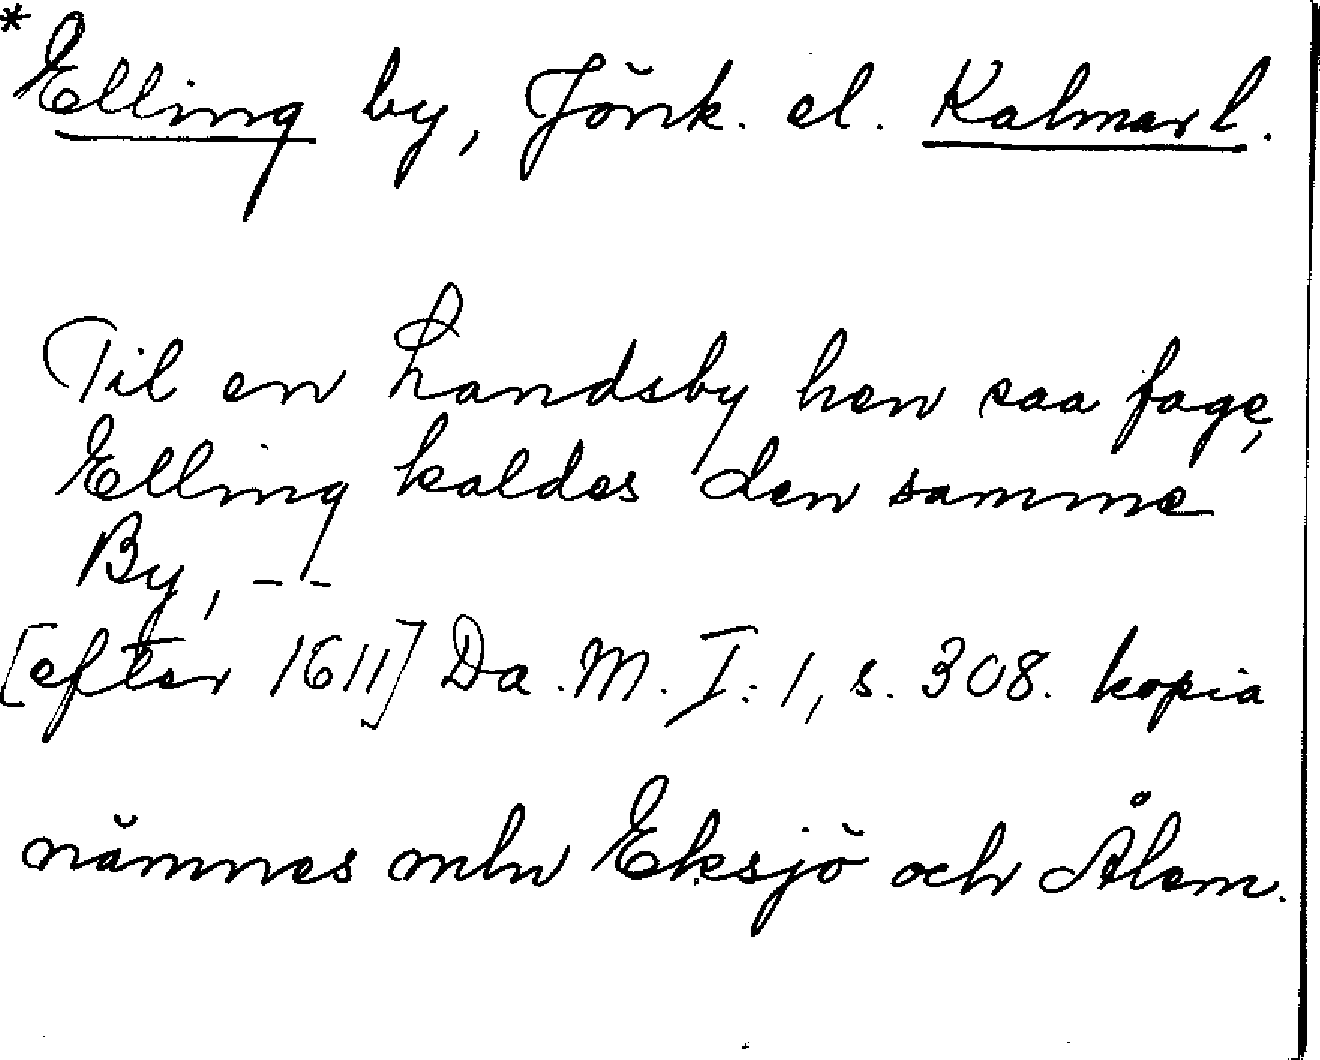 *Elling by, Jönk. el. Kalmar l.
Til en Landsby hen saa fage,
Elling kaldes den samme
By, --
[efter 1611] Da. M. I: 1, s. 308. kopia
nämnes mln Eksjö och Ålem.